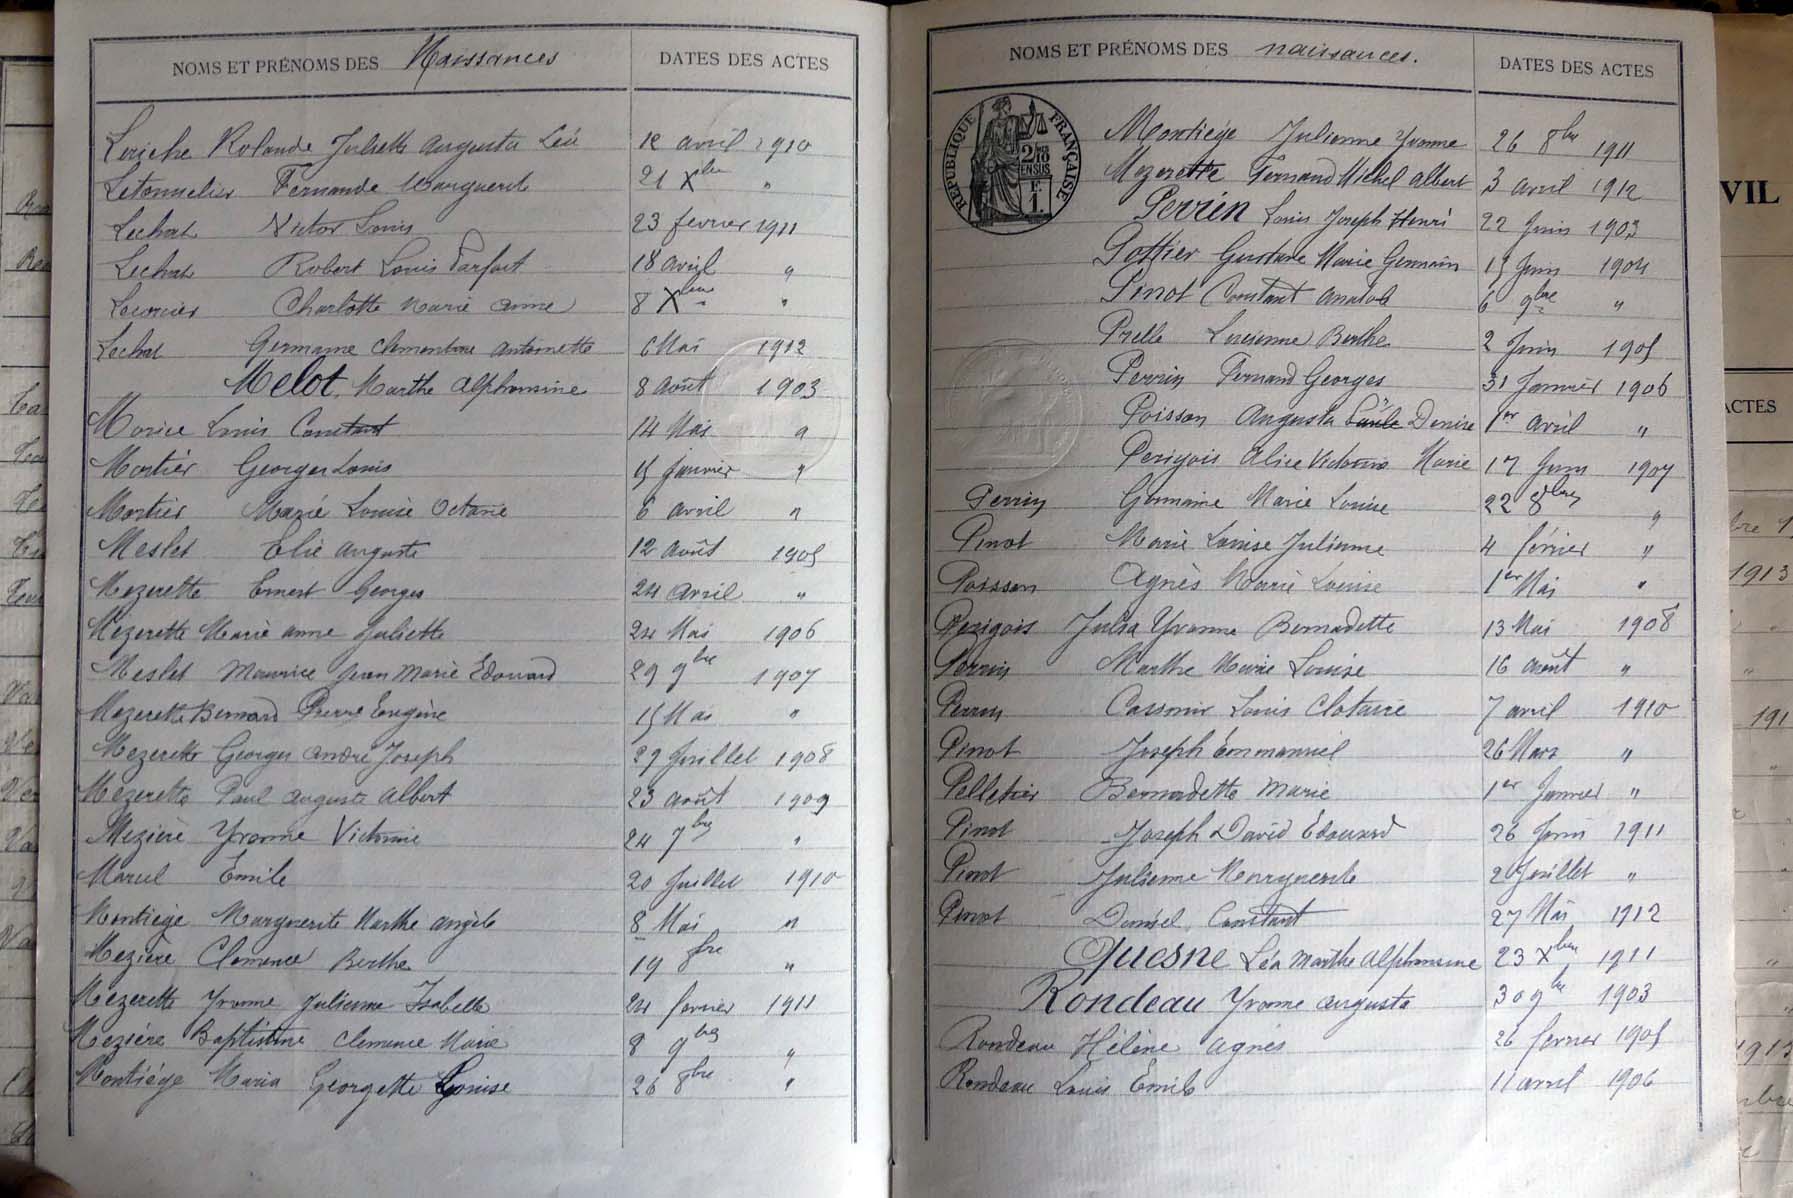 NOMS ET PRÉNOMS DES Naissances DATES DES ACTES
Leriche Rolande Juliette Augusta Léa 12 avril 1910
Letonnelier Fernande Marguerite 21 Xbre "
Lechat Victor Louis 23 fevrier 1911
Lechat Robert Louis Parfait 18 avril "
Charlotte Marie Anne 8 Xbre "
Lechat Germaine Clementine Antoinette 6 Mai 1912
Melot, Marthe Alphonsine 8 août 1903
Morice Louis Constant 14 Mai "
Mortier Georges Louis 15 janvier "
Mortier Marie Louise Octavie 6 avril "
Meslet Elie Auguste 12 août 1905
Mezerette Ernest Georges 24 avril "
Mezerette Marie Anne Juliette 24 Mai 1906
Meslet Maurice Jean Marie Edouard 29 9bre 1907
Mezerette Bernard Pierre Eugène 15 Mai "
Mezerette Georges André Joseph 29 Juillet 1908
Mezerette Paul Auguste Albert 23 août 1909
Mezière Yvonne Victorine 24 7bre "
Marcel Emile 20 Juillet 1910
Montiége Marguerite Marthe Angèle 8 Mai "
Mezière Clemence Berthe 19 "
Mezerette Yvonne Julienne Isabelle 24 fevrier 1911
Mezière Baptistine Clemence Marie 8 9bre "
Montiége Maria Georgette Louise 26 8bre "
NOMS ET PRÉNOMS DES naissances. DATES DES ACTES
RÉPUBLIQUE FRANÇAISE
2/10 EN SUS
F. 1.
Montiége Julienne Yvonne 26 8bre 1911
Mezerette Fernand Michel Albert 3 avril 1912
Perrin Louis Joseph Henri 22 Juin 1903
Pottier Gustave Marie Germain 15 Juin 1904
Pinot Constant Anatole 6 9bre "
Prelle Lucienne Berthe 2 Juin 1905
Perrin Fernand Georges 31 Janvier 1906
Poisson Augusta Denise 1er avril "
Perigois Alice Victorine Marie 17 Juin 1907
Perrin Germaine Marie Louise 22 8bre "
Pinot Marie Louise Julienne 4 février "
Poisson Agnès Marie Louise 1er Mai "
Perigois Julia Yvonne Bernadette 13 Mai 1908
Perrin Marthe Marie Louise 16 août "
Perrin Cassimir Louis Clotaire 7 avril 1910
Pinot Joseph Emmanuel 26 Mars "
Pelletier Bernadette Marie 1er Janvier "
Pinot Joseph David Edouard 26 Juin 1911
Pinot Julienne Marguerite 2 Juillet "
Pinot Daniel Constant 27 Mai 1912
Quesne Léa Marthe Alphonsine 23 Xbre 1911
Rondeau Yvonne Augusta 30 9bre 1903
Rondeau Hélène Agnés 26 fevrier 1905
Rondeau Louis Émile 11 avril 1906
VIL
ACTES
1913
191